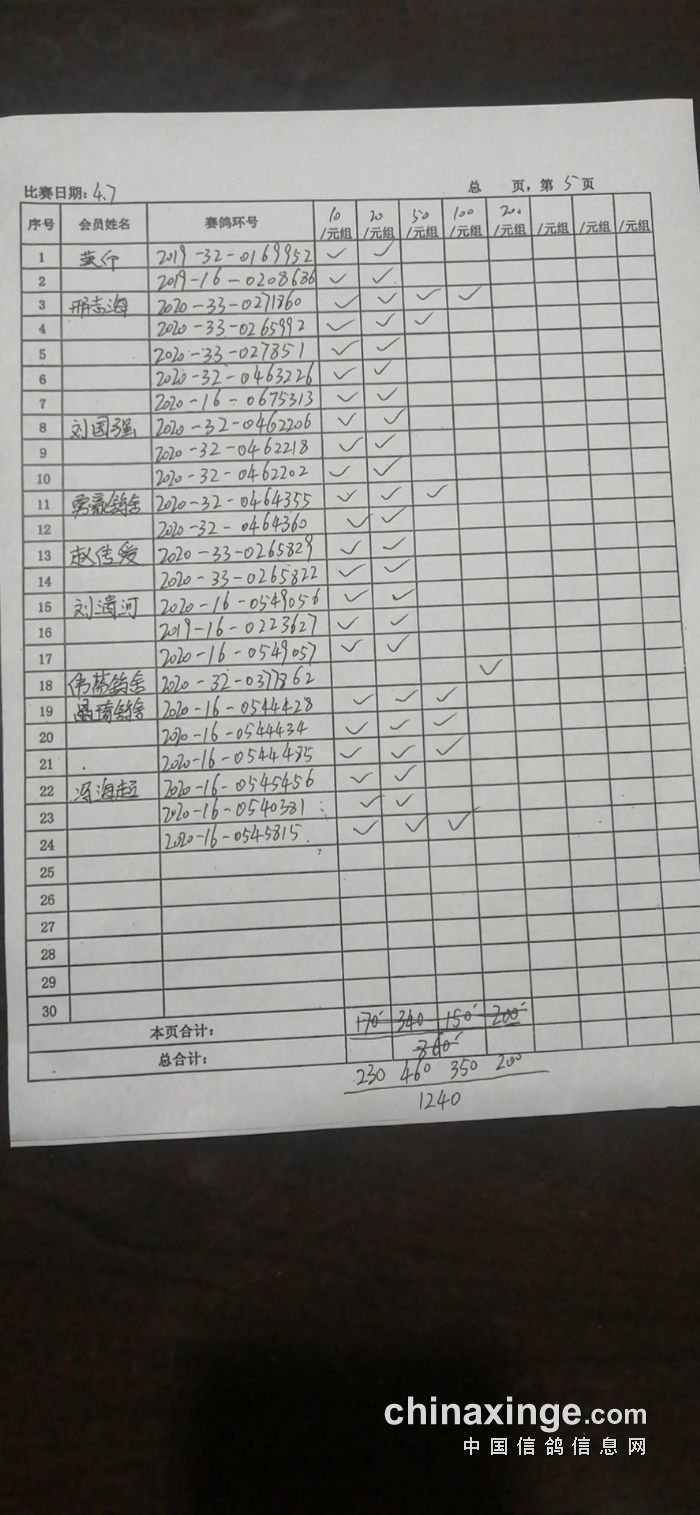 比赛日期: 4.7 总 页, 第 5 页
序号 会员姓名 赛鸽环号 10/元组 20/元组 50/元组 100/元组 200/元组 /元组 /元组 /元组
1 2019-32-0169952 ✓ ✓
2 2019-16-0208686 ✓ ✓
3 邢志海 2020-33-0271860 ✓ ✓ ✓ ✓
4 2020-33-0265992 ✓ ✓ ✓
5 2020-33-027851 ✓ ✓
6 2020-32-0463226 ✓ ✓
7 2020-16-0675313 ✓ ✓
8 刘国强 2020-32-0462206 ✓ ✓
9 2020-32-0462218 ✓ ✓
10 2020-32-0462202 ✓ ✓
11 鸽舍 2020-32-0464355 ✓ ✓ ✓
12 2020-32-0464360 ✓ ✓
13 赵传爱 2020-33-0265829 ✓ ✓
14 2020-33-0265822 ✓ ✓
15 刘清河 2020-16-0549056 ✓ ✓
16 2019-16-0223627 ✓ ✓
17 2020-16-0549057 ✓ ✓
18 鸽舍 2020-32-0377862 ✓
19 晶琦鸽舍 2020-16-0544428 ✓ ✓ ✓
20 2020-16-0544434 ✓ ✓ ✓
21 2020-16-0544485 ✓ ✓ ✓
22 冯海超 2020-16-0545456 ✓ ✓
23 2020-16-0540381 ✓ ✓
24 2020-16-0545815 ✓ ✓ ✓
25
26
27
28
29
30
本页合计: 170 340 150 200
总合计: 860
230 460 350 200
1240
chinaxinge.com
中国信鸽信息网